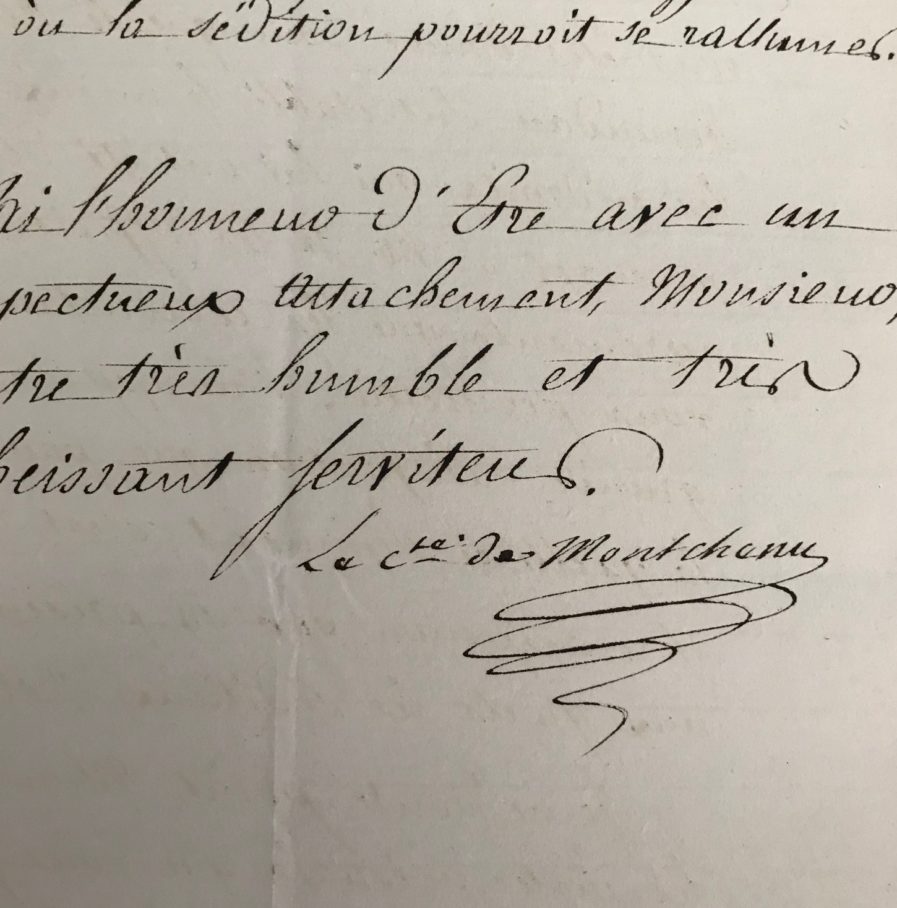 où la sédition pourroit se rallumer.
ai l'honneur d'Etre avec un
pectueux Attachement, Monsieur,
tre très humble et très
beissant serviteur.
Le cte. de Montchenu